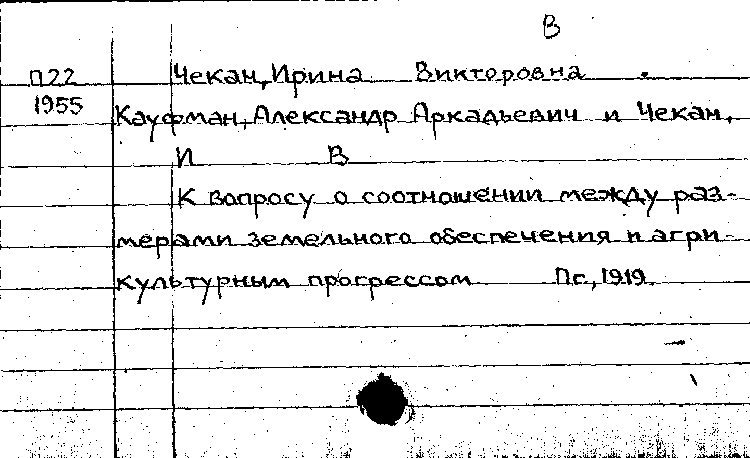 В
П22 Чекан, Ирина Викторовна.
1955 Кауфман, Александр Аркадьевич и Чекан,
И В
К вопросу о соотношении между раз-
мерами земельного обеспечения и агри-
культурным прогрессом Пг., 1919.